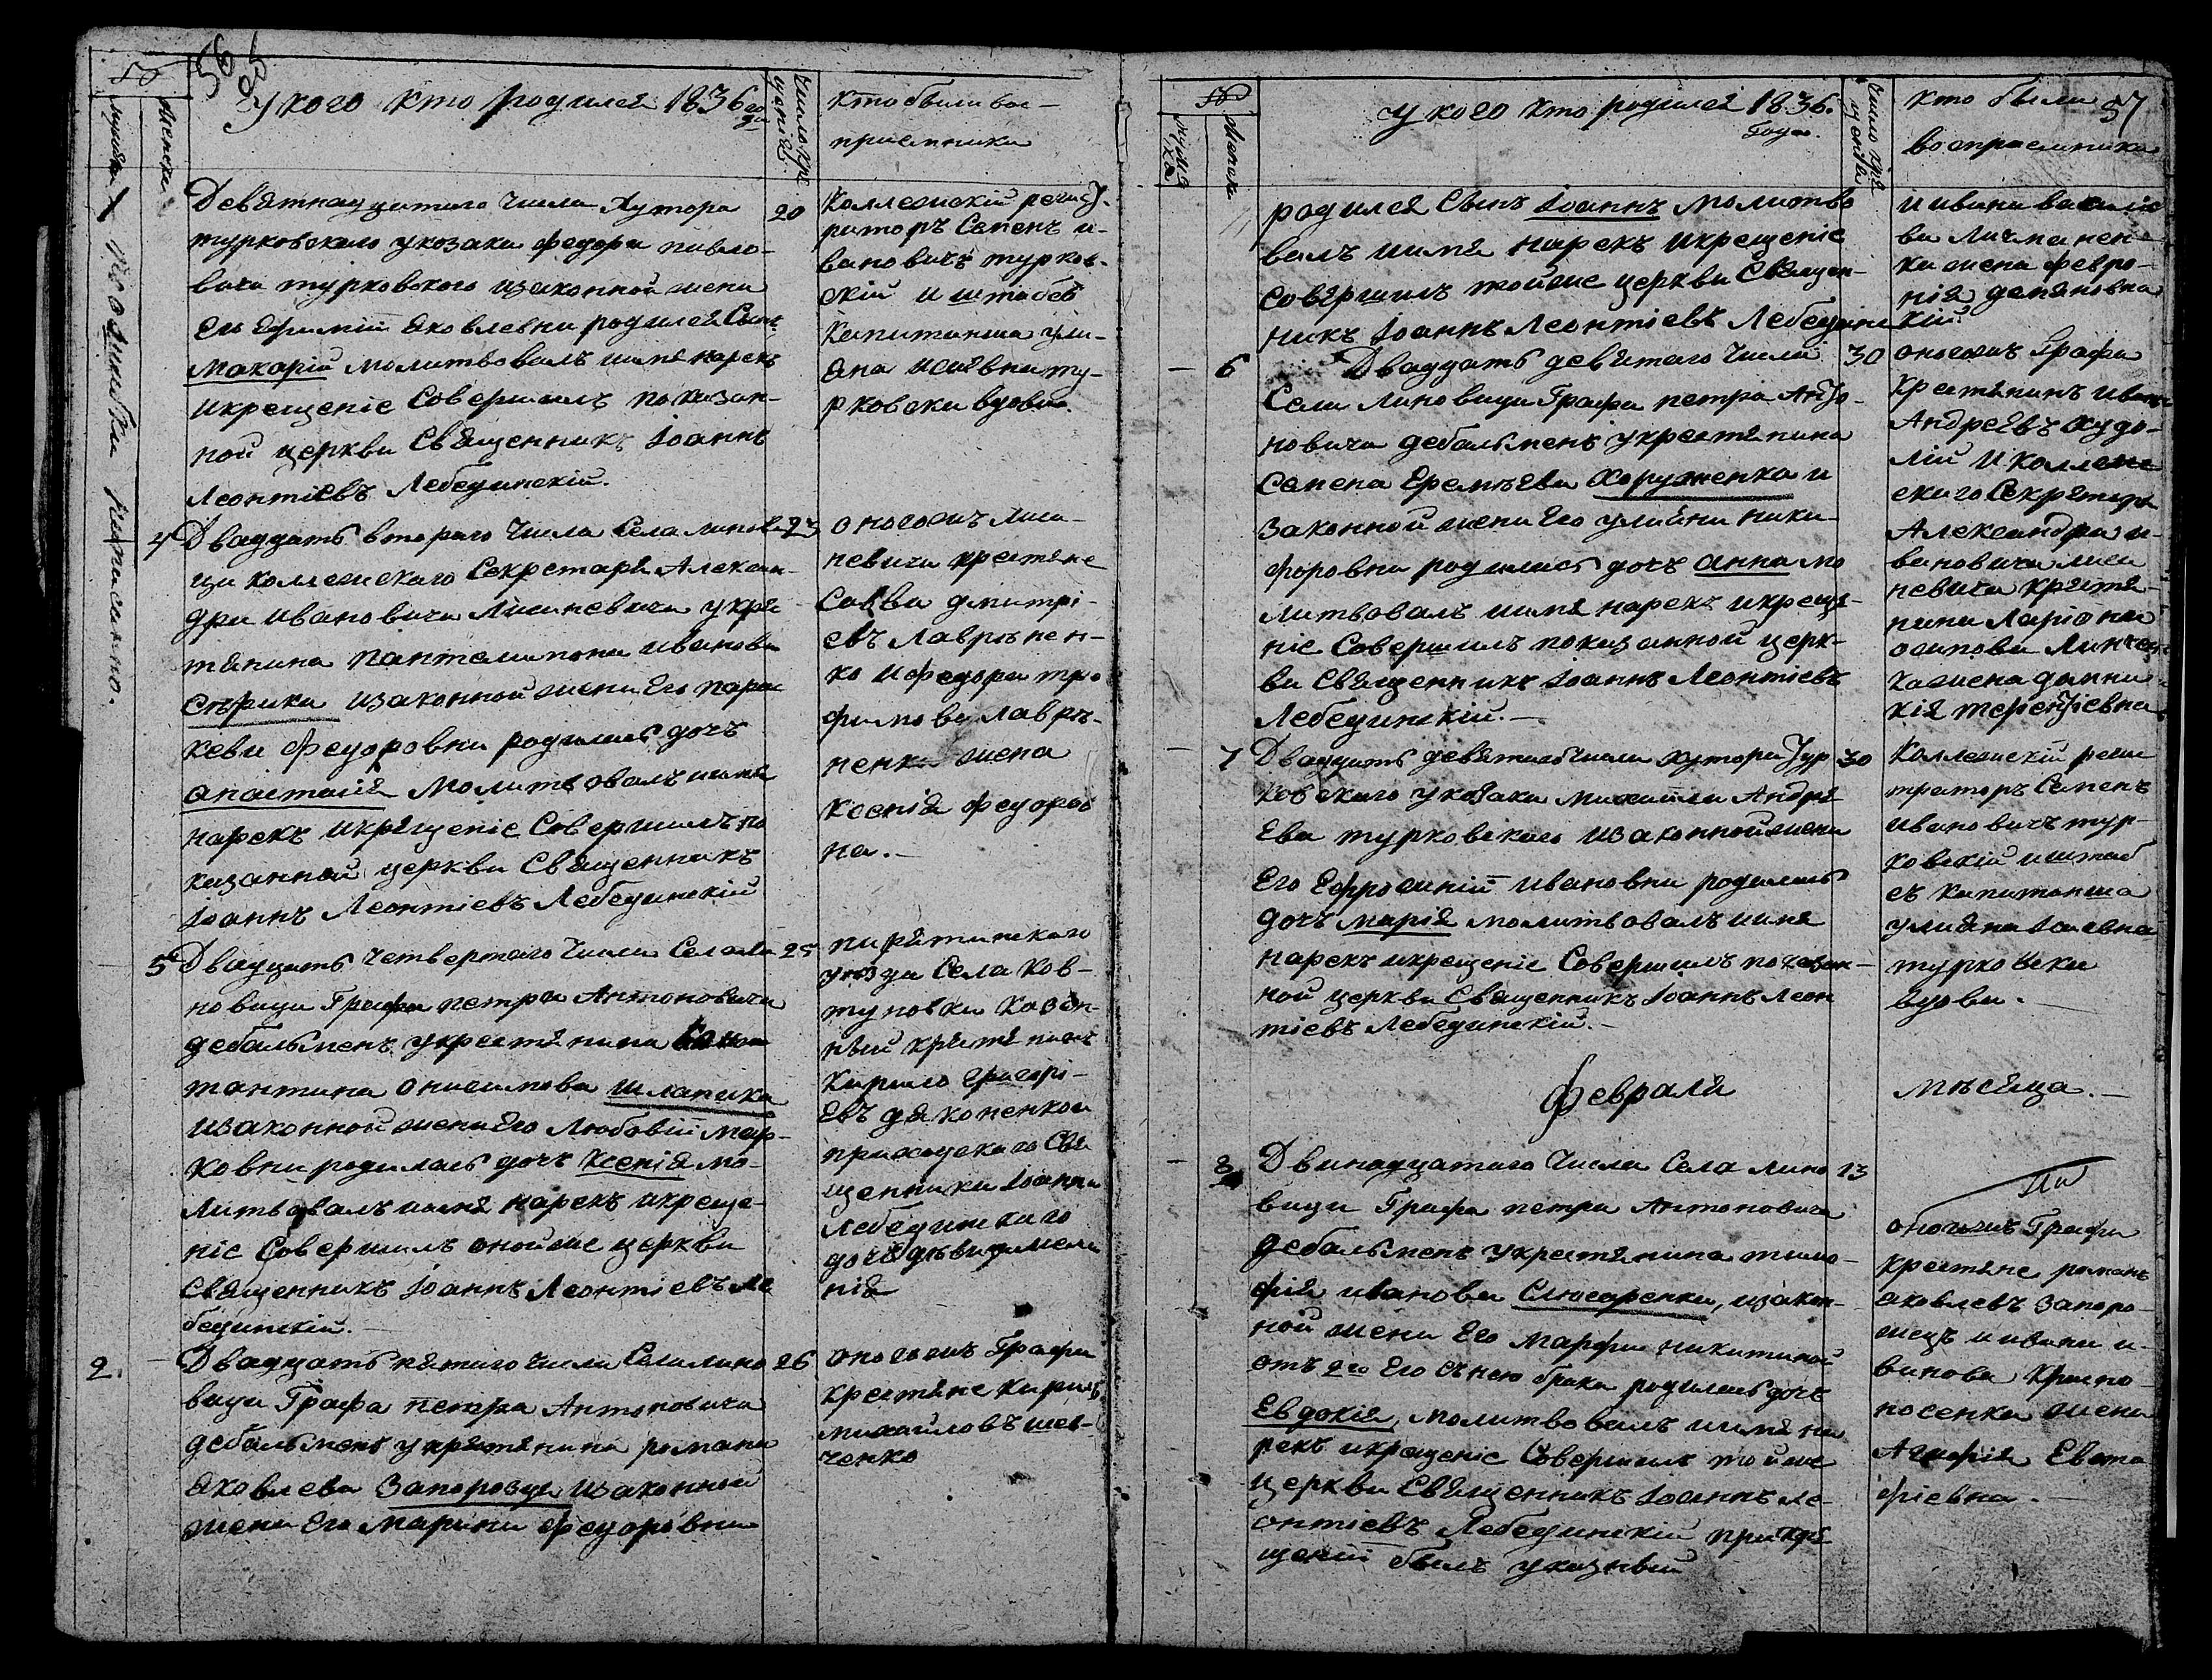 56
У кого кто родился 1836 го
да
Число кре
щенія
Кто были вос-
приемники
мужска
женска
1 По ошибки написано.
Девятнаццатаго числа Хутора
турковского у козака федора павло-
вича турковского изаконной жены
его Ефиміи яковлевны родился Сынъ
Макарій молитвовалъ имя нарекъ
икрещеніе Совершилъ показан-
ной церкви Священникъ Іоаннъ
Леонтіевъ Лебединскій.
20
Коллежскій регист-
раторъ Семенъ и-
вановичъ турков-
скій и штабсъ
капитанша ули-
яна исаевна ту-
рковска вдова.
4 Двадцать втораго числа Села линови
ци коллежскаго Секретаря Алексан-
дра ивановича Лисаневича у кре
тянина пантелимона иванова
Сѣрика изаконной жены Его пара
кеви федоровны родилась дочъ
анастасія молитвовалъ имя
нарекъ икрещеніе Совершилъ по
казанной церкви Священникъ
Іоаннъ Леонтіевъ Лебединскій
23
оногожъ Лиса-
невича крестяне
Савва дмитрі-
евъ лаврѣнен-
ко и федора тро
фимова лаврѣ-
ненка жена
Ксенія федоров
на.
5 Двадцать четвертаго числа Села ли
новици Графа петра Антоновича
дебальменъ у крестянина Конс
тантина онисимова шлапика
изаконной жены Его Любовіи мар-
ковны родилась дочъ Ксенія мо-
литвовалъ имя нарекъ икреще-
ніе Совершилъ онойже церкви
Священникъ Іоаннъ Леонтіевъ Ле
бединскій.
25
пирятинскаго
уѣзда Села Ков-
туновки казен-
ный крестянинъ
Кирило григорі-
евъ дяконенко и
приходскаго Свя
щенника Іоанна
Лебединскаго
дочъ дѣвица мела
нія
2. Двадцать пятаго числа Села лино
вици Графа петра Антоновича
дебальменъ у крестянина романа
яковлева Запорожца изаконной
жены Его марины федоровны
26
оногожъ Графа
крестяне кирилъ
михайловъ шев-
ченко
57
У кого кто родился 1836.
года.
Число кре
щенія
Кто были
воспріемники
мужс
ка
женска
родился Сынъ Іоаннъ молитво
валъ имя нарекъ икрещеніе
Совершилъ тойже церкви Священ-
никъ Іоаннъ Леонтіевъ Лебединс
кій.
и ивана василіе
ва личмanен-
ка жена февро-
нія демяновна
6 Двадцать девятаго числа
Села линовици Графа петра Анто-
новича дебальменъ у крестянина
Семена Еремѣева Хоруженка и
законной жены Его улияны ники-
форовны родилась дочъ анна мо
литвовалъ имя нарекъ икреще-
ніе Совершилъ показанной церк-
ви Священникъ Іоаннъ Леонтіевъ
Лебединскій.
30
оногожъ Графа
крестянинъ иванъ
Андреевъ худо-
лій и коллеж
скаго Секретаря
Александра и-
вановича лиса
невича крестя
нина ларіона
осипова
жена домни
кія терентіевна
7 Двадцать девятаго числа хутора тур
ковскаго у козака михаила Андре
ева турковскаго изаконной жены
Его Ефросиніи ивановны родилась
дочъ марія молитвовалъ имя
нарекъ икрещеніе Совершилъ показан-
ной церкви Священникъ Іоаннъ Леон
тіевъ Лебединскій.
30
Коллежскій реги
траторъ Семенъ
ивановичъ тур-
ковскій и штаб
съ капитанша
улияна Ісаевна
турковска
вдова.
февраля мѣсяца.
8 Двинадцатаго числа Села лино
вици Графа петра Антоновича
дебальменъ у крестянина тимо-
фія иванова Слюсаренка, изакон-
ной жены Его марфы никитиной
отъ 2го Его съ нею брака родилась дочъ
Евдокія, молитвовалъ имя на
рекъ икрещеніе Совершилъ тойже
церкви Священникъ Іоаннъ Ле-
онтіевъ Лебединскій при кре
щеніи былъ указный
13
оногожъ Графа
крестяне романъ
яковлевъ запоро-
жецъ и ивана и-
ванова красно-
носенка жена
Агафія Евста
фіевна.